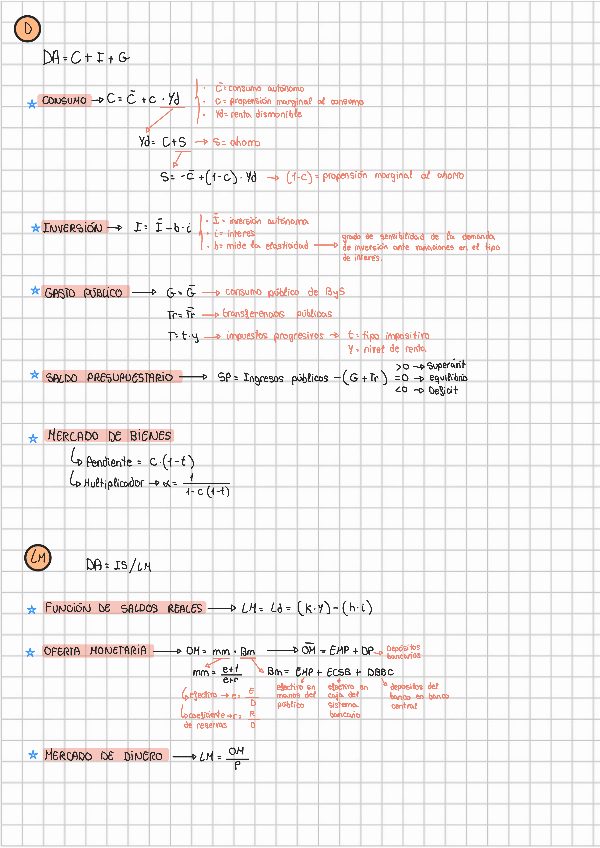 D
DA = C + I + G
CONSUMO → C = C̄ + c · Yd
· C̄ = consumo autónomo
· c = propensión marginal al consumo
· Yd = renta disponible
Yd = C + S → S = ahorro
S = -C̄ + (1-c) · Yd → (1-c) = propensión marginal al ahorro
INVERSIÓN → I = Ī - b · i
· Ī = inversión autónoma
· i = interés
· b = mide la elasticidad → grado de sensibilidad de la demanda
de inversión ante variaciones en el tipo
de interés.
GASTO PÚBLICO → G = Ḡ → consumo público de ByS
Tr = T̄r → transferencias públicas
T = t · y → impuestos progresivos → t = tipo impositivo
Y = nivel de renta.
SALDO PRESUPUESTARIO → SP = Ingresos públicos - (G + Tr)
>0 → superávit
=0 → equilibrio
<0 → Déficit
MERCADO DE BIENES
↳ Pendiente = c · (1-t)
↳ Multiplicador → α = 1 / 1-c (1-t)
LM
DA = IS/LM
FUNCIÓN DE SALDOS REALES → LM = Ld = (k · Y) - (h · i)
OFERTA MONETARIA → OM = mm · Bm → O̅M̅ = EMP + DP → Depósitos
bancarios
mm = e+1 / e+r
Bm = EMP + ECSB + DBBC
↳ efectivo → e = E / D
↳ coeficiente → r = R / D
de reservas
efectivo en
manos del
público
efectivo en
caja del
sistema
bancario
depósitos del
banco en banco
central
MERCADO DE DINERO → LM = OM / P